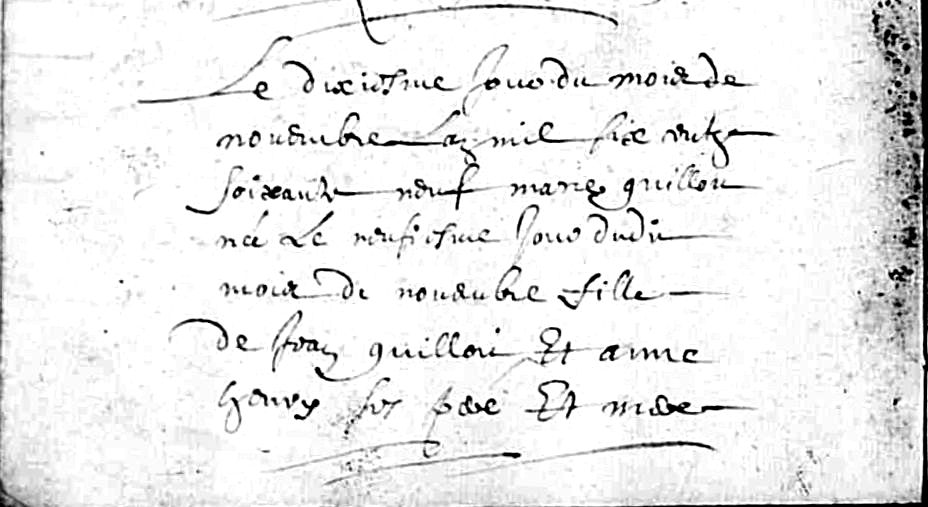 Le dixiesme Jour du mois de
novembre Lan mil six centz
soixante neuf marie guillou
née Le neufiesme Jour dudit
mois de novembre fille
de Jean guillou Et anne
henry ses pere Et mere